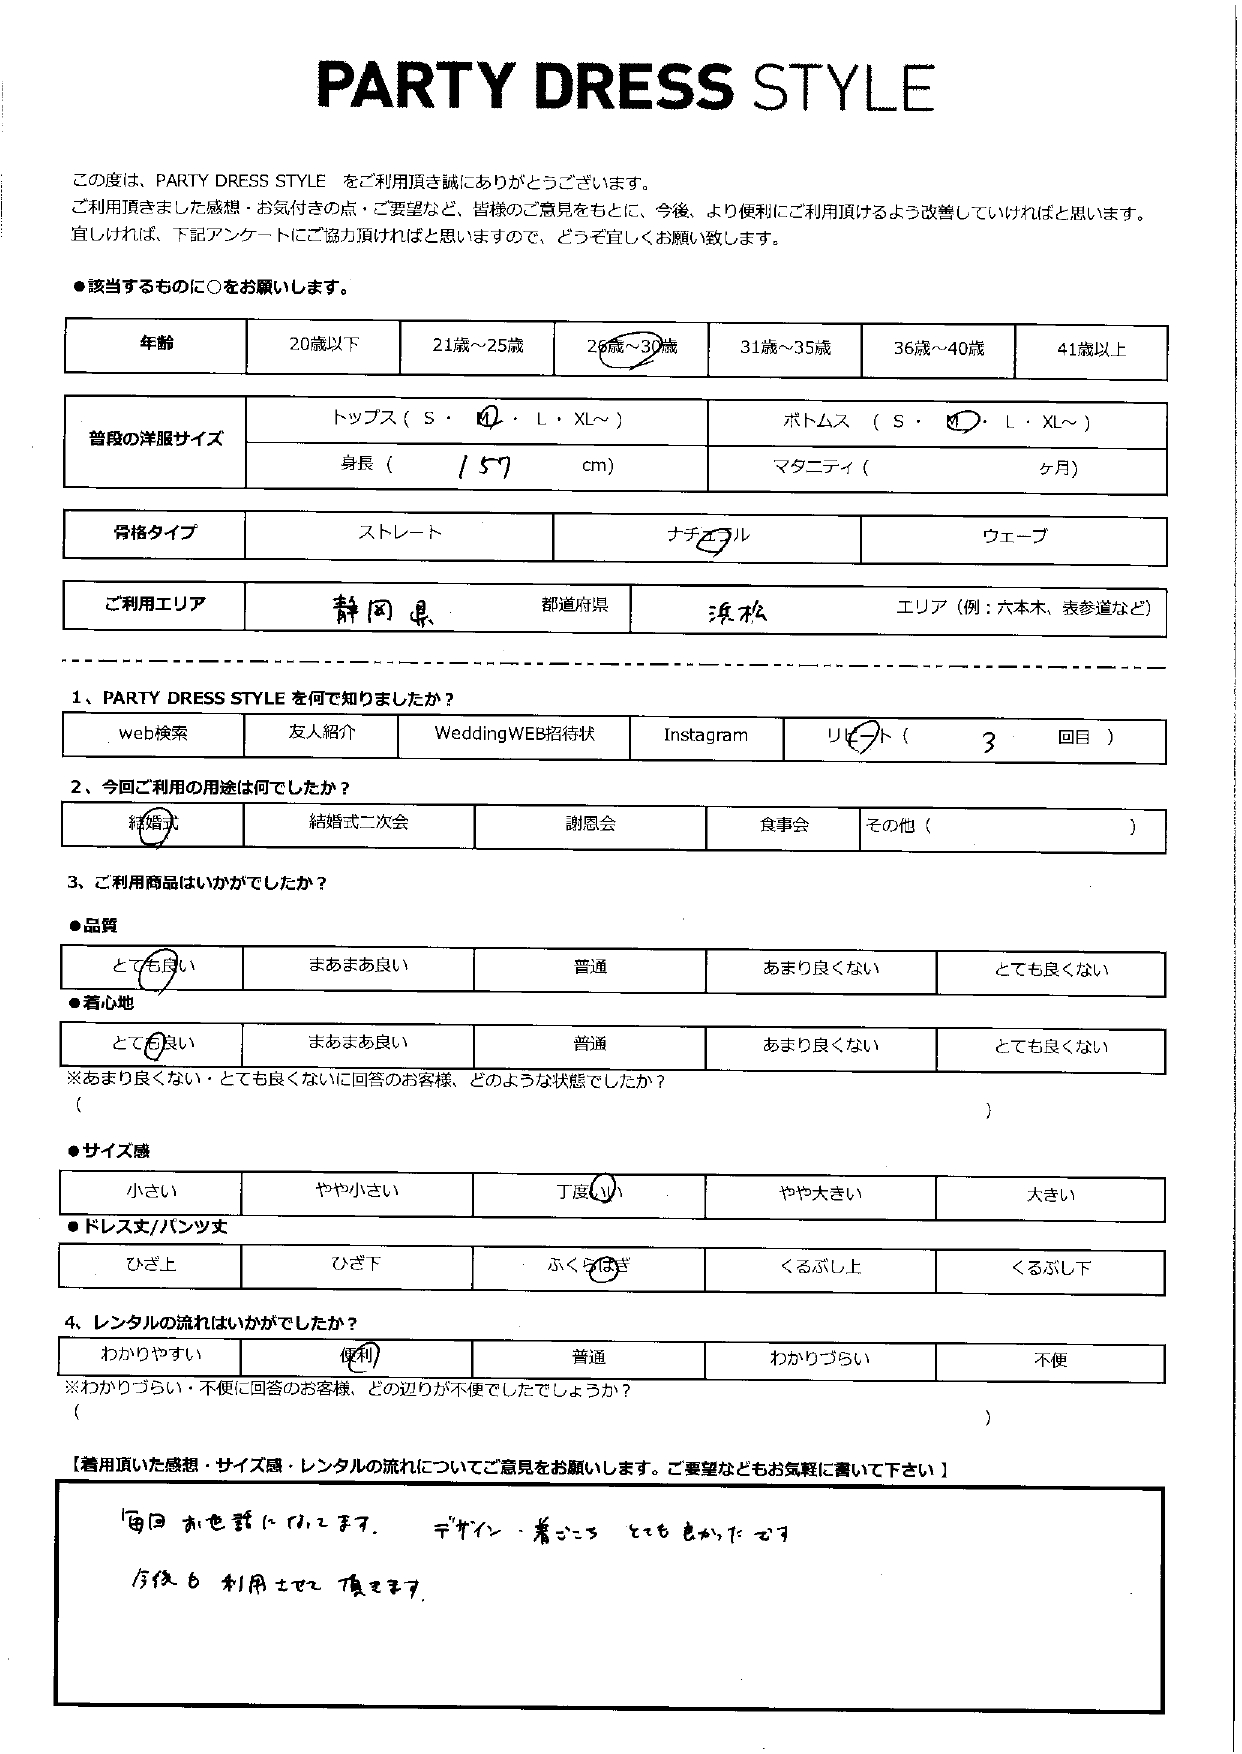 PARTY DRESS STYLE
この度は、PARTY DRESS STYLE をご利用頂き誠にありがとうございます。
ご利用頂きました感想・お気付きの点・ご要望など、皆様のご意見をもとに、今後、より便利にご利用頂けるよう改善していければと思います。
宜しければ、下記アンケートにご協力頂ければと思いますので、どうぞ宜しくお願い致します。
●該当するものに○をお願いします。
年齢 20歳以下 21歳～25歳 26歳～30歳 31歳～35歳 36歳～40歳 41歳以上
普段の洋服サイズ トップス ( S ・ M ・ L ・ XL～ ) ボトムス ( S ・ M ・ L ・ XL～ )
身長 ( 157 cm) マタニティ ( ヶ月)
骨格タイプ ストレート ナチュラル ウェーブ
ご利用エリア 静岡県 都道府県 浜松 エリア（例：六本木、表参道など）
1、PARTY DRESS STYLE を何で知りましたか？
web検索 友人紹介 WeddingWEB招待状 Instagram リピート ( 3 回目 )
2、今回ご利用の用途は何でしたか？
結婚式 結婚式二次会 謝恩会 食事会 その他 ( )
3、ご利用商品はいかがでしたか？
●品質
とても良い まあまあ良い 普通 あまり良くない とても良くない
●着心地
とても良い まあまあ良い 普通 あまり良くない とても良くない
※あまり良くない・とても良くないに回答のお客様、どのような状態でしたか？
( )
●サイズ感
小さい やや小さい 丁度いい やや大きい 大きい
●ドレス丈/パンツ丈
ひざ上 ひざ下 ふくらはぎ くるぶし上 くるぶし下
4、レンタルの流れはいかがでしたか？
わかりやすい 便利 普通 わかりづらい 不便
※わかりづらい・不便に回答のお客様、どの辺りが不便でしたでしょうか？
( )
【着用頂いた感想・サイズ感・レンタルの流れについてご意見をお願いします。ご要望などもお気軽に書いて下さい 】
毎回 お世話になってます. デザイン・着ごこち とても良かったです
今後も 利用させて 頂きます.